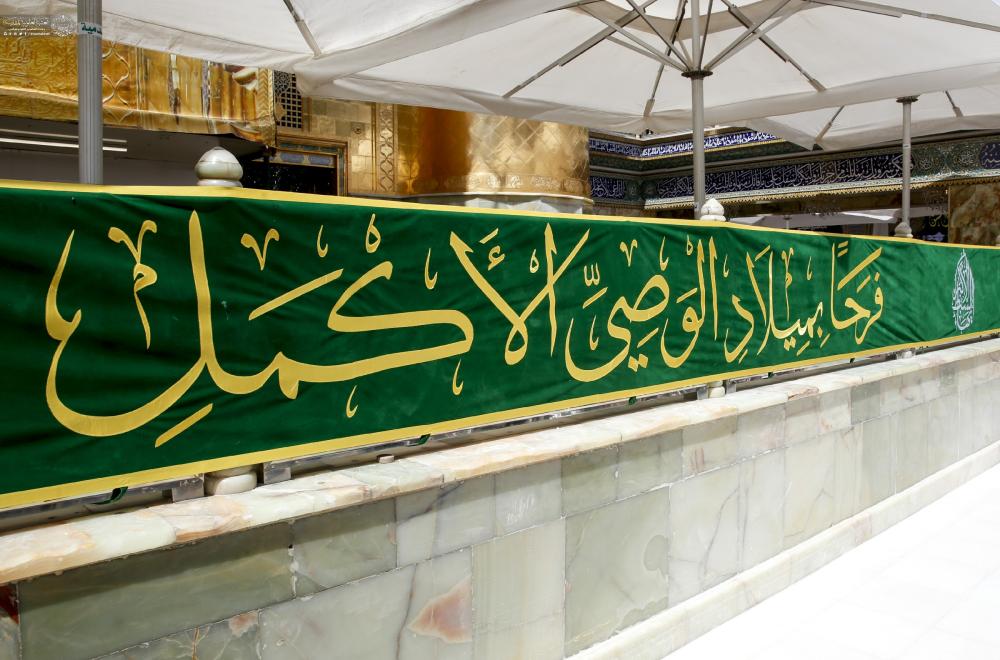 فَرَحًا بِمِيلَادِ الوَصِيِّ الأَكْمَلِ